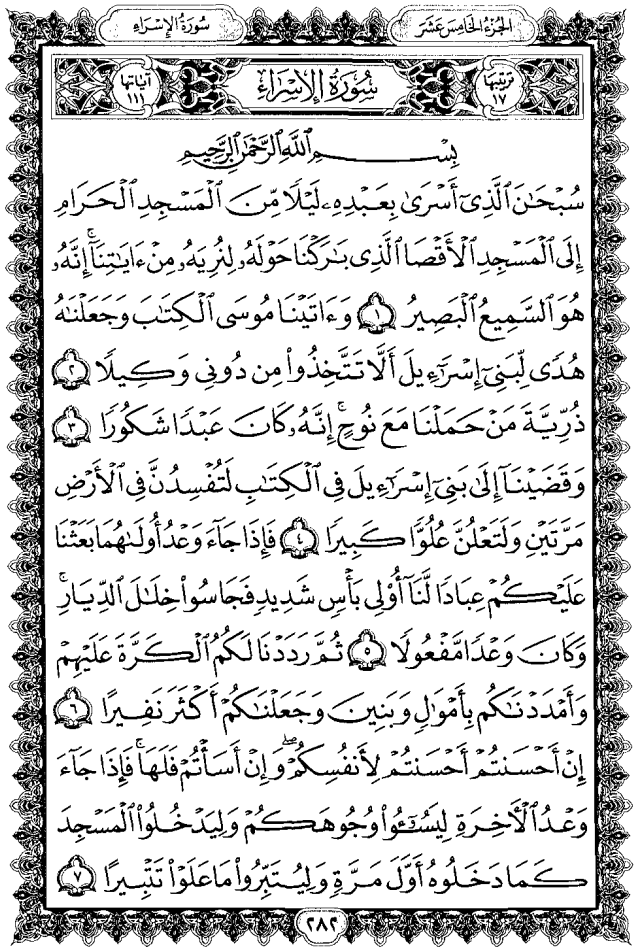 الجزء الخامس عشر
سورة الإسراء
ترتيبها ١٧
سُورَةُ الإِسْرَاءِ
آياتها ١١١
بِسْمِ ٱللَّهِ ٱلرَّحْمَٰنِ ٱلرَّحِيمِ
سُبْحَٰنَ ٱلَّذِىٓ أَسْرَىٰ بِعَبْدِهِۦ لَيْلًا مِّنَ ٱلْمَسْجِدِ ٱلْحَرَامِ
إِلَى ٱلْمَسْجِدِ ٱلْأَقْصَا ٱلَّذِى بَٰرَكْنَا حَوْلَهُۥ لِنُرِيَهُۥ مِنْ ءَايَٰتِنَآ ۚ إِنَّهُۥ
هُوَ ٱلسَّمِيعُ ٱلْبَصِيرُ ١ وَءَاتَيْنَا مُوسَى ٱلْكِتَٰبَ وَجَعَلْنَٰهُ
هُدًى لِّبَنِىٓ إِسْرَٰٓءِيلَ أَلَّا تَتَّخِذُوا۟ مِن دُونِى وَكِيلًا ٢
ذُرِّيَّةَ مَنْ حَمَلْنَا مَعَ نُوحٍ ۚ إِنَّهُۥ كَانَ عَبْدًا شَكُورًا ٣
وَقَضَيْنَآ إِلَىٰ بَنِىٓ إِسْرَٰٓءِيلَ فِى ٱلْكِتَٰبِ لَتُفْسِدُنَّ فِى ٱلْأَرْضِ
مَرَّتَيْنِ وَلَتَعْلُنَّ عُلُوًّا كَبِيرًا ٤ فَإِذَا جَآءَ وَعْدُ أُولَىٰهُمَا بَعَثْنَا
عَلَيْكُمْ عِبَادًا لَّنَآ أُو۟لِى بَأْسٍ شَدِيدٍ فَجَاسُوا۟ خِلَٰلَ ٱلدِّيَارِ ۚ
وَكَانَ وَعْدًا مَّفْعُولًا ٥ ثُمَّ رَدَدْنَا لَكُمُ ٱلْكَرَّةَ عَلَيْهِمْ
وَأَمْدَدْنَٰكُم بِأَمْوَٰلٍ وَبَنِينَ وَجَعَلْنَٰكُمْ أَكْثَرَ نَفِيرًا ٦
إِنْ أَحْسَنتُمْ أَحْسَنتُمْ لِأَنفُسِكُمْ ۖ وَإِنْ أَسَأْتُمْ فَلَهَا ۚ فَإِذَا جَآءَ
وَعْدُ ٱلْأَخِرَةِ لِيَسُۥٓـُٔوا۟ وُجُوهَكُمْ وَلِيَدْخُلُوا۟ ٱلْمَسْجِدَ
كَمَا دَخَلُوهُ أَوَّلَ مَرَّةٍ وَلِيُتَبِّرُوا۟ مَا عَلَوْا۟ تَتْبِيرًا ٧
٢٨٢